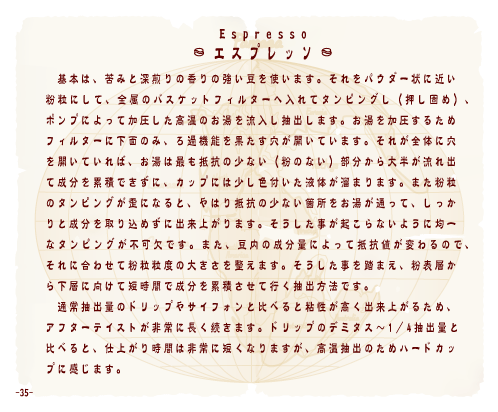 Espresso
エスプレッソ
基本は、苦みと深煎りの香りの強い豆を使います。それをパウダー状に近い
粉粒にして、金属のバスケットフィルターへ入れてタンピングし（押し固め）、
ポンプによって加圧した高温のお湯を流入し抽出します。お湯を加圧するため
フィルターに下面のみ、ろ過機能を果たす穴が開いています。それが全体に穴
を開いていれば、お湯は最も抵抗の少ない（粉のない）部分から大半が流れ出
て成分を累積できずに、カップには少し色付いた液体が溜まります。また粉粒
のタンピングが歪になると、やはり抵抗の少ない箇所をお湯が通って、しっか
りと成分を取り込めずに出来上がります。そうした事が起こらないように均一
なタンピングが不可欠です。また、豆内の成分量によって抵抗値が変わるので、
それに合わせて粉粒粒度の大きさを整えます。そうした事を踏まえ、粉表層か
ら下層に向けて短時間で成分を累積させて行く抽出方法です。
通常抽出量のドリップやサイフォンと比べると粘性が高く出来上がるため、
アフターテイストが非常に長く続きます。ドリップのデミタス～1/4抽出量と
比べると、仕上がり時間は非常に短くなりますが、高温抽出のためハードカッ
プに感じます。
-35-